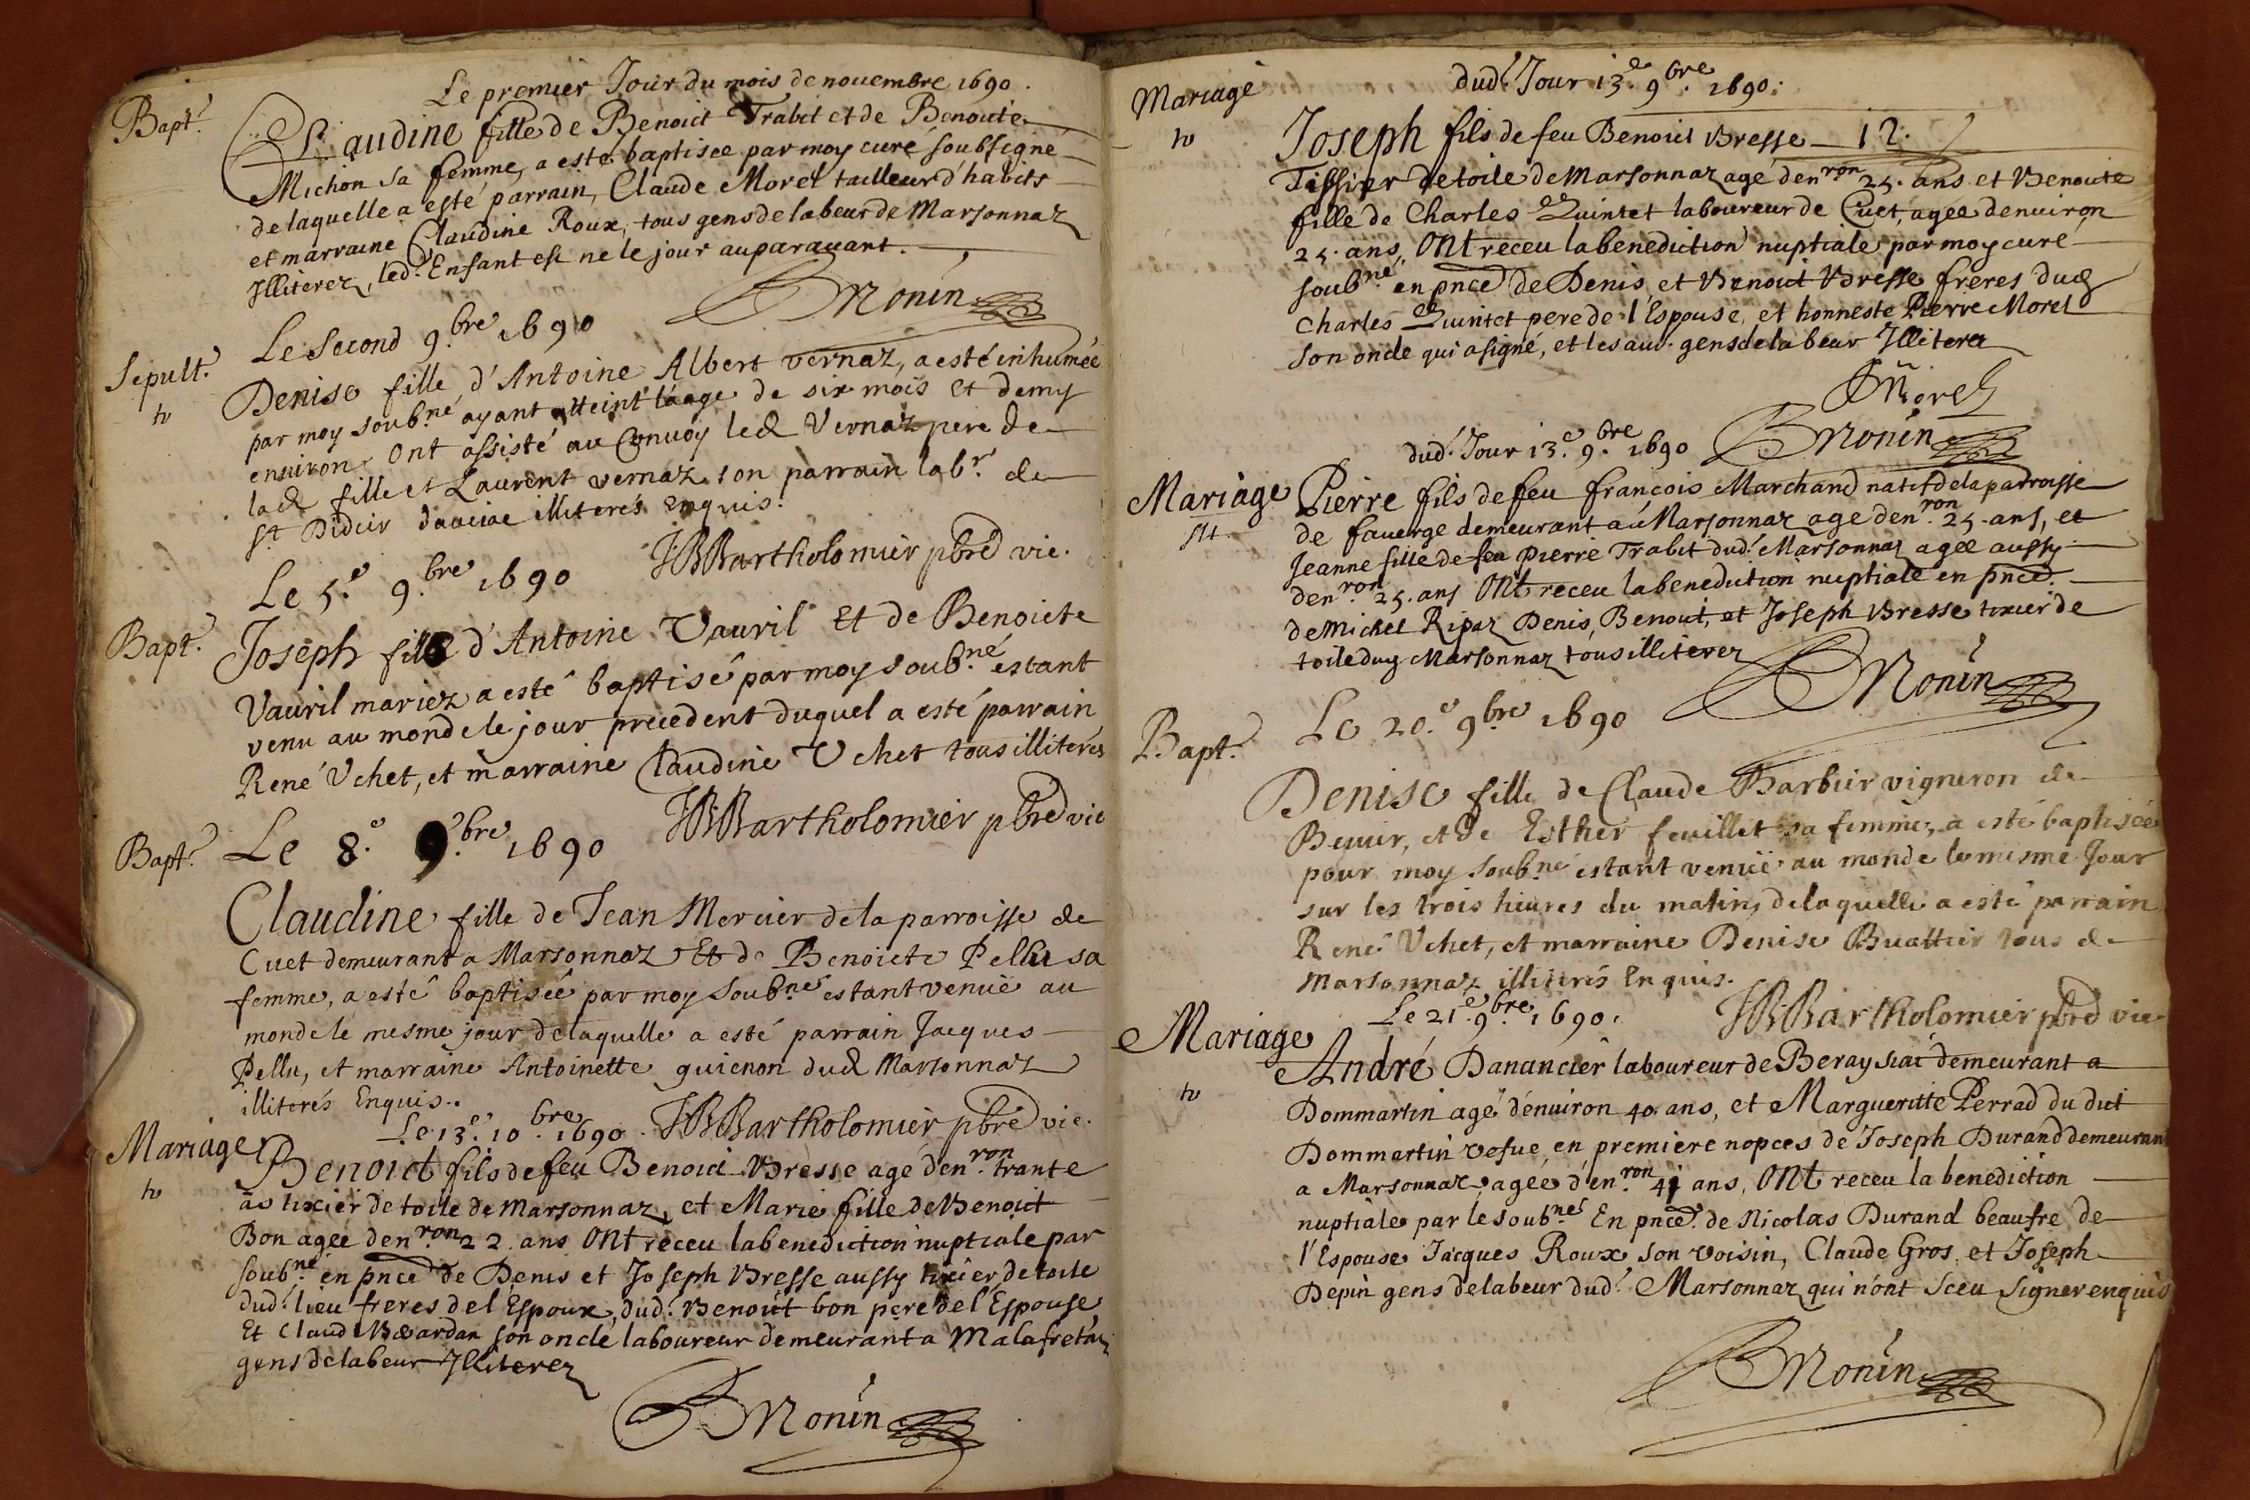 Le premier Jour du mois de nouembre 1690.
Bapt.
Claudine fille de Benoict Trabit et de Benoite
Michon sa femme, a esté baptisee par moy curé soubsigne
de laquelle a esté parrain, Claude Morel tailleur d'habits
et marraine Claudine Roux, tous gens de labeur de Marsonnaz
Illiterez, led. Enfant est ne le jour auparauant.
BMonin
Le Second 9.bre 1690
Sepult.
Denise fille d'Antoine Albert vernaz, a esté inhumée
par moy soub.né ayant atteint l'aage de six mois et demy
enuiron. Ont assisté au Convoy led Vernaz pere de
lad fille et Laurent vernaz son parrain lab.r de
s.t Didier illiterés Enquis.
JBBartholomier pbre vic.
Le 5.e 9.bre 1690
Bapt.
Joseph fils d'Antoine Vauril Et de Benoicte
Vauril mariez a esté baptisé par moy soub.né estant
venu au monde le jour precedent duquel a esté parrain
René Vchet, et marraine Claudine Vchet tous illiterés
JBBartholomier pbre vic
Bapt.
Le 8.e 9.bre 1690
Claudine fille de Jean Mercier de la parroisse de
Cuet demeurant a Marsonnaz Et de Benoicte Pellu sa
femme, a esté baptiséé par moy Soub.né estant venuë au
monde le mesme jour de laquelle a esté parrain Jacques
Pellu, et marraine Antoinette guienon dud Marsonnaz
illiterés Enquis.
Le 13.e 10.bre 1690. JBBartholomier pbre vic.
Mariage
Benoict fils de feu Benoict Bresse age den.ron trante
ās tixier de toile de Marsonnaz, et Marie fille de Benoict
Bon agée den.ron 22. ans Ont receu la benediction nuptiale par
soub.né en pnce de Denis et Joseph Bresse aussy tixier de toile
dud. lieu freres del Espoux, dud. Benoict bon pere del Espouse
Et Claude son oncle laboureur demeurant a Malafretaz
gens de labeur Illiterez
BMonin
Mariage
dud. Jour 13.e 9.bre 1690.
Joseph fils de feu Benoict Bresse 12.
Tissier de toile de Marsonnaz agé den.ron 25. ans et Benoite
fille de Charles Quintet laboureur de Cuet, agée denuiron
25. ans, Ont receu la benediction nuptiale par moy curé
soub.né en pnce de Denis, et Benoict Bresse freres dud
Charles Quintet pere de l'Espouse, et honneste Pierre Morel
son oncle qui a signé, et les aut. gens de labeur Illiterez
Morel
BMonin
dud. Jour 13.e 9.bre 1690
Mariage
Pierre fils de feu francois Marchand natif de la parroisse
de fauerge demeurant au Marsonnaz age den.ron 25. ans, et
Jeanne fille de feu Pierre Trabit dud. Marsonnaz agée aussy
den.ron 25. ans Ont receu la benediction nuptiale en pnce.
de Michel Ripaz Denis, Benoict, et Joseph Bresse tixier de
toile duy Marsonnaz tous illiterez
BMonin
Le 20.e 9.bre 1690
Bapt.
Denise fille de Claude Barbier vigneron de
et de Esther feuillet sa femme, a esté baptisée
pour moy Soub.né estant venuë au monde le mesme Jour
sur les trois heures du matin, de laquelle a esté parrain
René Vchet, et marraine Denise Buattier tous de
Marsonnaz illiterés Enquis.
Le 21.e 9.bre 1690. JBBartholomier pbre vic.
Mariage
André Danancier laboureur de demeurant a
Dommartin agé d'enuiron 40. ans, et Margueritte Perrad du dit
Dommartin vefue en premiere nopces de Joseph Durand demeurant
a Marsonnaz, agéé d'en.ron ans, Ont receu la benediction
nuptiale par le soub.né En pnce. de Nicolas Durand beaufre de
l'Espouse Jacques Roux son voisin, Claude Gros, et Joseph
Depin gens de labeur dud. Marsonnaz qui n'ont sceu signer enquis
BMonin